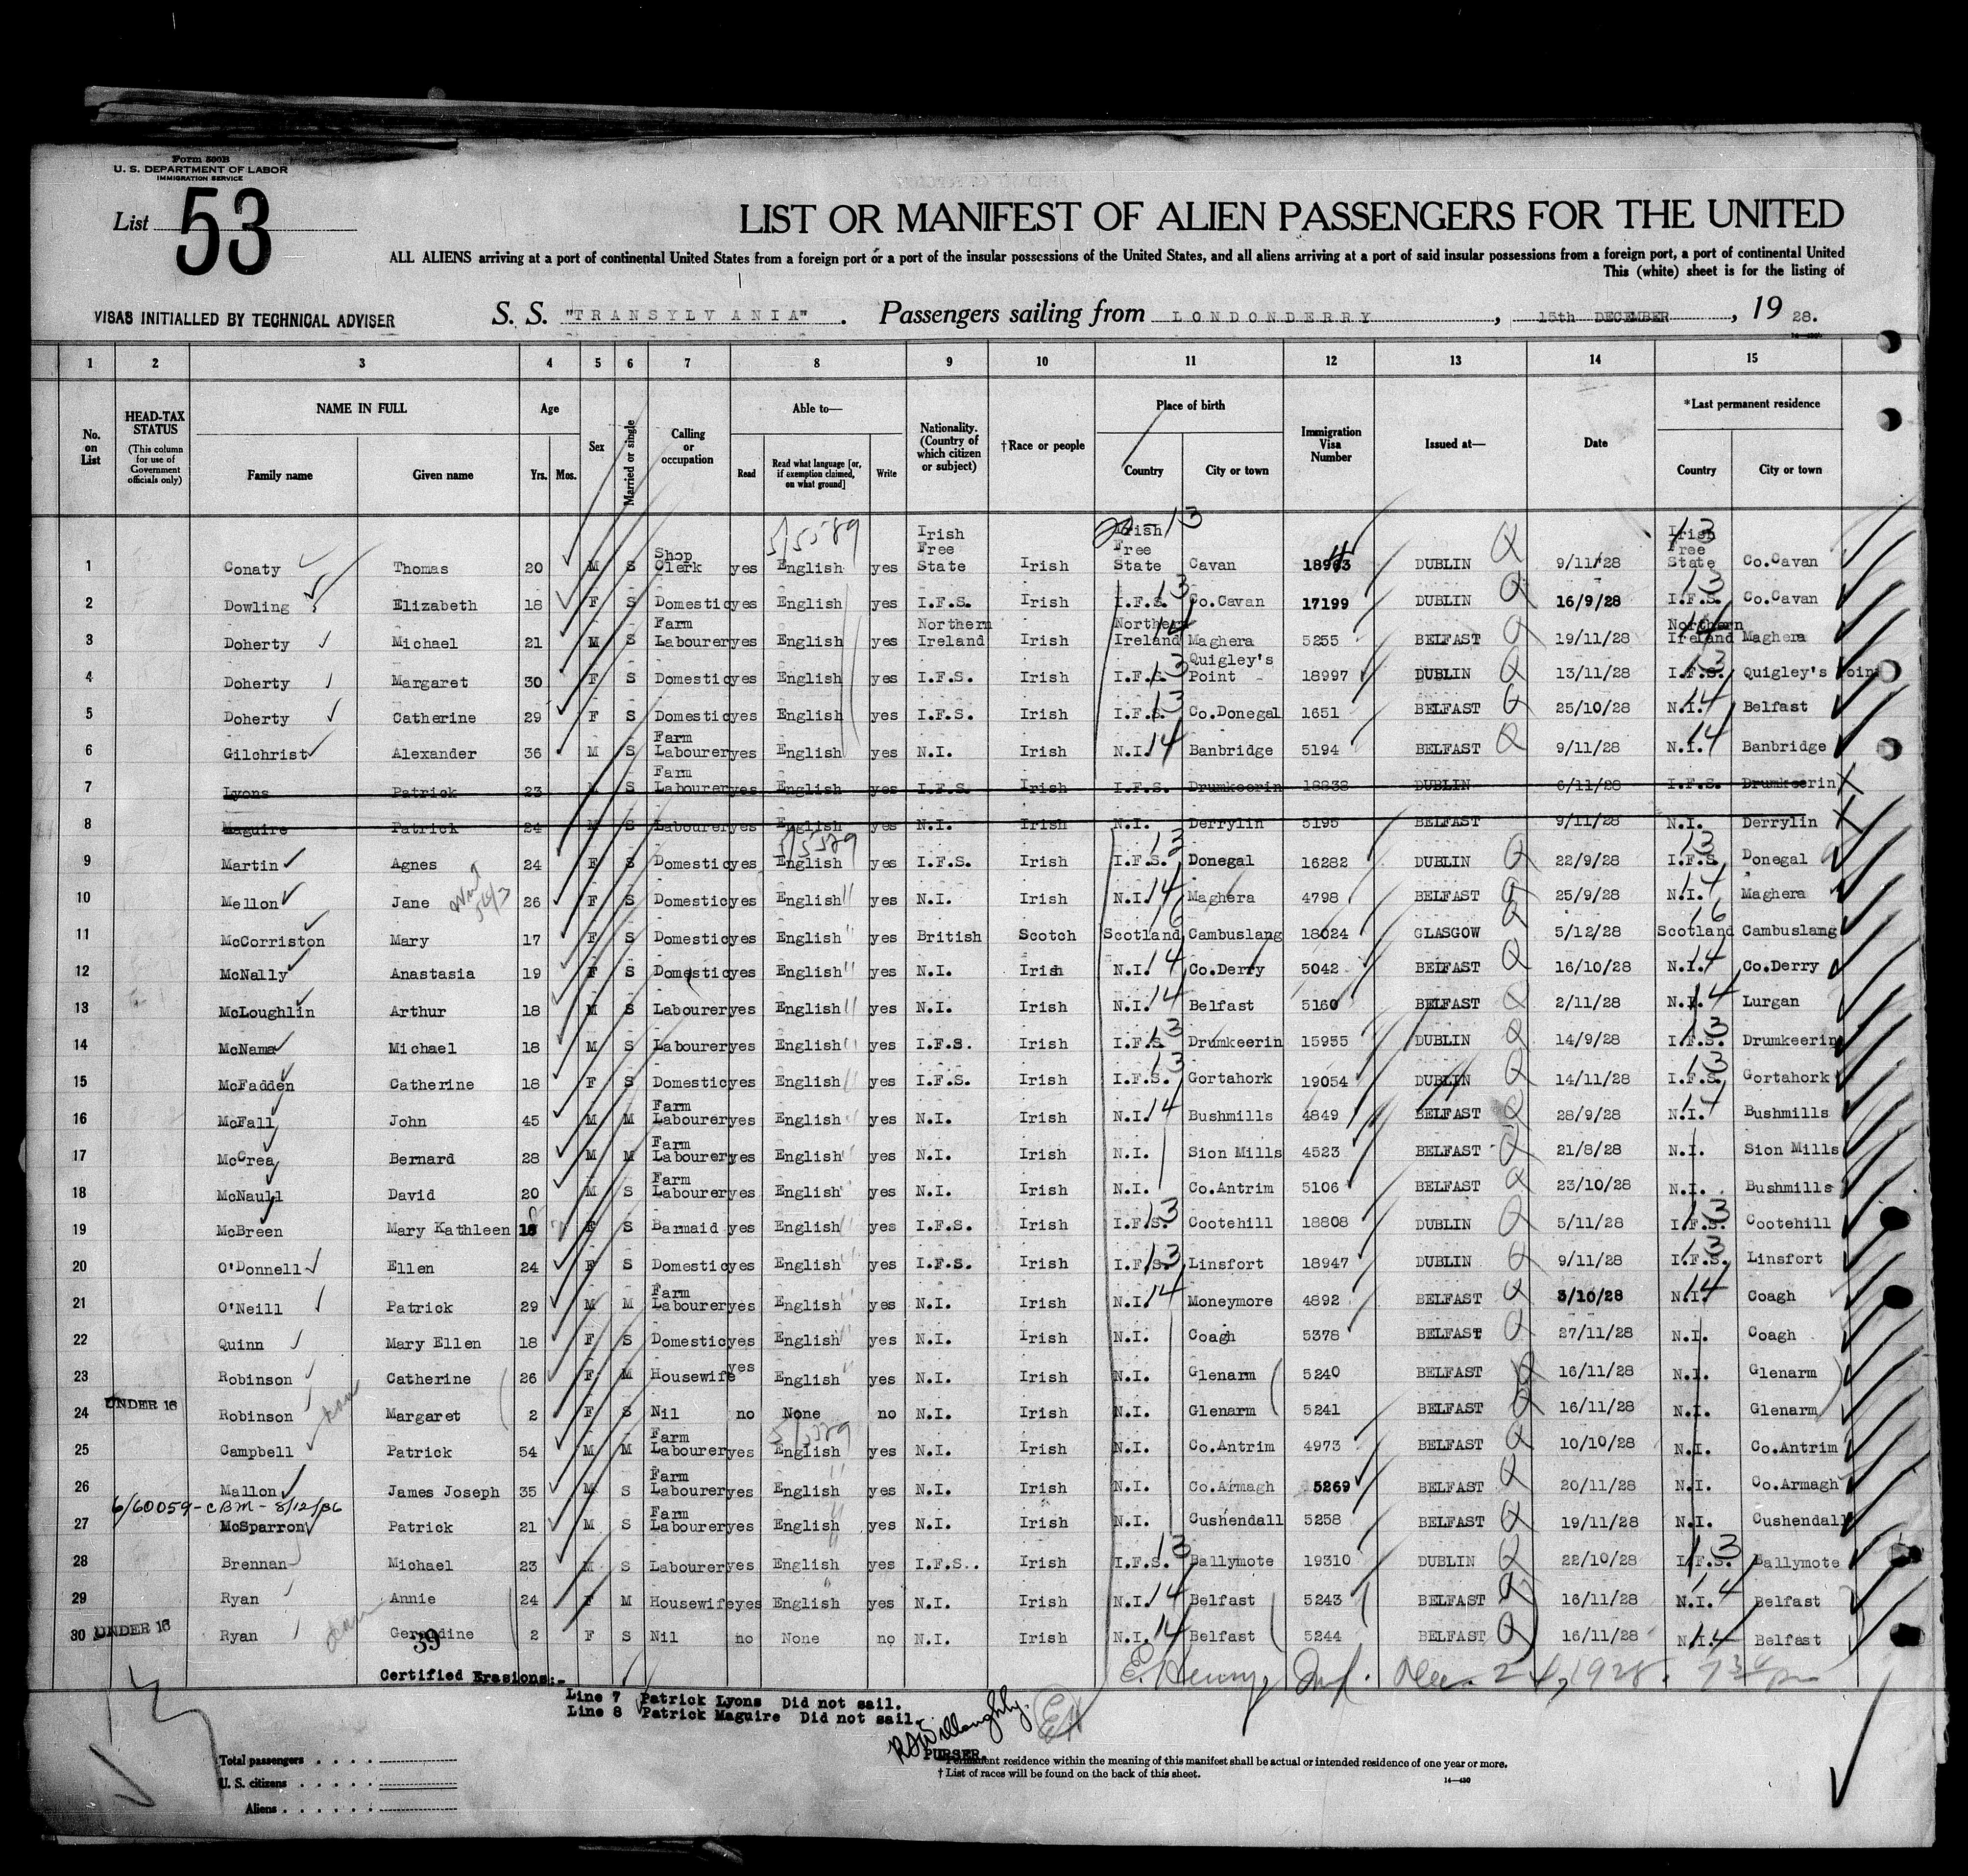 Form 500B
U. S. DEPARTMENT OF LABOR
IMMIGRATION SERVICE
List 53
LIST OR MANIFEST OF ALIEN PASSENGERS FOR THE UNITED
ALL ALIENS arriving at a port of continental United States from a foreign port or a port of the insular possessions of the United States, and all aliens arriving at a port of said insular possessions from a foreign port, a port of continental United
This (white) sheet is for the listing of
VISAS INITIALLED BY TECHNICAL ADVISER
S. S. "TRANSYLVANIA". Passengers sailing from LONDONDERRY, 15th DECEMBER, 1928.
1 2 3 4 5 6 7 8 9 10 11 12 13 14 15
No. on List
HEAD-TAX STATUS (This column for use of Government officials only)
NAME IN FULL Family name Given name
Age Yrs. Mos.
Sex
Married or single
Calling or occupation
Able to— Read Read what language [or, if exemption claimed, on what ground] Write
Nationality. (Country of which citizen or subject)
†Race or people
Place of birth Country City or town
Immigration Visa Number
Issued at—
Date
*Last permanent residence Country City or town
5/5589
1 Conaty Thomas 20 M S Shop Clerk yes English yes Irish Free State Irish Irish Free State 13 Cavan 18963 4 DUBLIN 9/11/28 Irish Free State 13 Co.Cavan
2 Dowling Elizabeth 18 F S Domestic yes English yes I.F.S. Irish I.F.S. 13 Co.Cavan 17199 DUBLIN 16/9/28 I.F.S. 13 Co.Cavan
3 Doherty Michael 21 M S Farm Labourer yes English yes Northern Ireland Irish Northern Ireland 14 Maghera 5255 BELFAST 19/11/28 Northern Ireland 14 Maghera
4 Doherty Margaret 30 F S Domestic yes English yes I.F.S. Irish I.F.S. 13 Quigley's Point 18997 DUBLIN 13/11/28 I.F.S. 13 Quigley's Point
5 Doherty Catherine 29 F S Domestic yes English yes I.F.S. Irish I.F.S. 13 Co.Donegal 1651 BELFAST 25/10/28 N.I. 14 Belfast
6 Gilchrist Alexander 36 M S Farm Labourer yes English yes N.I. Irish N.I. 14 Banbridge 5194 BELFAST 9/11/28 N.I. 14 Banbridge
7 Lyons Patrick 23 M S Farm Labourer yes English yes I.F.S. Irish I.F.S. Drumkeerin 18838 DUBLIN 6/11/28 I.F.S. Drumkeerin X
8 Maguire Patrick 24 M S Labourer yes English yes N.I. Irish N.I. Derrylin 5195 BELFAST 9/11/28 N.I. Derrylin X
9 Martin Agnes 24 F S Domestic yes English yes I.F.S. Irish I.F.S. 13 Donegal 16282 DUBLIN 22/9/28 I.F.S. 13 Donegal
10 Mellon Jane 26 F S Domestic yes English " yes N.I. Irish N.I. 14 Maghera 4798 BELFAST 25/9/28 N.I. 14 Maghera
11 McCorriston Mary 17 F S Domestic yes English " yes British Scotch Scotland 16 Cambuslang 18024 GLASGOW 5/12/28 Scotland 16 Cambuslang
12 McNally Anastasia 19 F S Domestic yes English " yes N.I. Irish N.I. 14 Co.Derry 5042 BELFAST 16/10/28 N.I. 14 Co.Derry
13 McLoughlin Arthur 18 M S Labourer yes English " yes N.I. Irish N.I. 14 Belfast 5160 BELFAST 2/11/28 N.I. 14 Lurgan
14 McNama Michael 18 M S Labourer yes English " yes I.F.S. Irish I.F.S. 13 Drumkeerin 15955 DUBLIN 14/9/28 I.F.S. 13 Drumkeerin
15 McFadden Catherine 18 F S Domestic yes English " yes I.F.S. Irish I.F.S. 13 Gortahork 19054 DUBLIN 14/11/28 I.F.S. 13 Gortahork
16 McFall John 45 M M Farm Labourer yes English " yes N.I. Irish N.I. 14 Bushmills 4849 BELFAST 28/9/28 N.I. 14 Bushmills
17 McCrea Bernard 28 M M Farm Labourer yes English " yes N.I. Irish N.I. Sion Mills 4523 BELFAST 21/8/28 N.I. Sion Mills
18 McNaull David 20 M S Farm Labourer yes English " yes N.I. Irish N.I. Co.Antrim 5106 BELFAST 23/10/28 N.I. Bushmills
19 McBreen Mary Kathleen 18 F S Barmaid yes English " yes I.F.S. Irish I.F.S. 13 Cootehill 18808 DUBLIN 5/11/28 I.F.S. 13 Cootehill
20 O'Donnell Ellen 24 F S Domestic yes English " yes I.F.S. Irish I.F.S. 13 Linsfort 18947 DUBLIN 9/11/28 I.F.S. 13 Linsfort
21 O'Neill Patrick 29 M M Farm Labourer yes English " yes N.I. Irish N.I. 14 Moneymore 4892 BELFAST 3/10/28 N.I. 14 Coagh
22 Quinn Mary Ellen 18 F S Domestic yes English " yes N.I. Irish N.I. Coagh 5378 BELFAST 27/11/28 N.I. Coagh
23 Robinson Catherine 26 F M Housewife yes English " yes N.I. Irish N.I. Glenarm 5240 BELFAST 16/11/28 N.I. Glenarm
24 UNDER 16 Robinson Margaret 2 F S Nil no None no N.I. Irish N.I. Glenarm 5241 BELFAST 16/11/28 N.I. Glenarm
25 Campbell Patrick 54 M M Farm Labourer yes English yes N.I. Irish N.I. Co.Antrim 4973 BELFAST 10/10/28 N.I. Co.Antrim
26 Mallon James Joseph 35 M S Farm Labourer yes English " yes N.I. Irish N.I. Co.Armagh 5269 BELFAST 20/11/28 N.I. Co.Armagh
6/60059-CBM-8/12/36
27 McSparron Patrick 21 M S Farm Labourer yes English " yes N.I. Irish N.I. Cushendall 5258 BELFAST 19/11/28 N.I. Cushendall
28 Brennan Michael 23 M S Labourer yes English " yes I.F.S.. Irish I.F.S. 13 Ballymote 19310 DUBLIN 22/10/28 I.F.S. 13 Ballymote
29 Ryan Annie 24 F M Housewife yes English " yes N.I. Irish N.I. 14 Belfast 5243 BELFAST 16/11/28 N.I. 14 Belfast
30 UNDER 16 Ryan Geraldine 2 F S Nil no None no N.I. Irish N.I. 14 Belfast 5244 BELFAST 16/11/28 N.I. 14 Belfast
39
E. Henry, Inf. Dec. 24, 1928. 7 30 pm
Certified Erasions:-
Line 7 Patrick Lyons Did not sail.
Line 8 Patrick Maguire Did not sail.
RSWilloughby.
EH
PURSER.
Total passengers
U. S. citizens
Aliens
*Permanent residence within the meaning of this manifest shall be actual or intended residence of one year or more.
† List of races will be found on the back of this sheet.
14—430